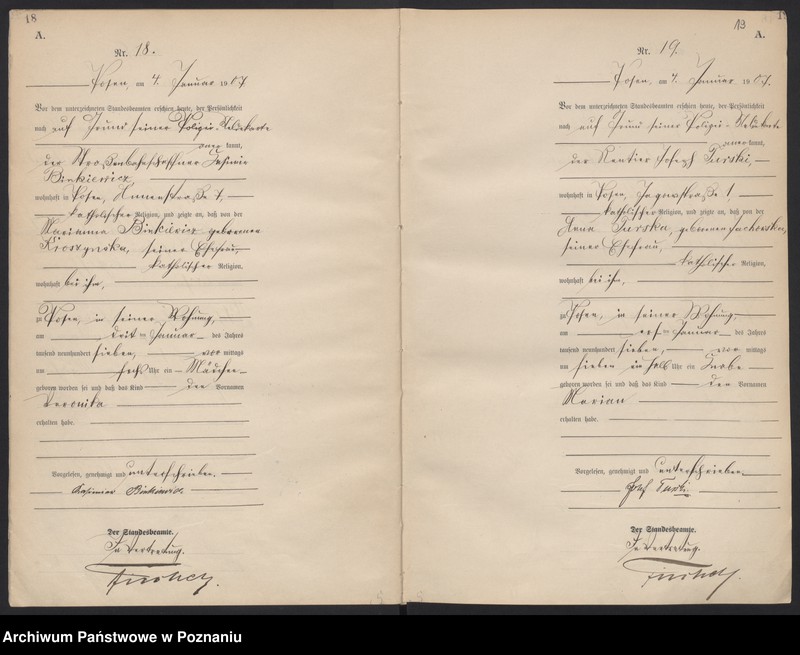 18
A.
Nr. 18.
Posen, am 4. Januar 1907.
Vor dem unterzeichneten Standesbeamten erschien heute, der Persönlichkeit
nach auf Grund seiner Polizei-Meldekarte
anerkannt,
der Straßenbahnschaffner Kasimir
Binkiewicz
wohnhaft in Posen,
katholischer Religion, und zeigte an, daß von der
Marianna Binkiewicz geborenen
seiner Ehefrau,
katholischer Religion,
wohnhaft bei ihm,
zu Posen, in seiner Wohnung,
am dritten Januar des Jahres
tausend neunhundert sieben, vor mittags
um sechs Uhr ein Mädchen
geboren worden sei und daß das Kind den Vornamen
Veronika
erhalten habe.
Vorgelesen, genehmigt und unterschrieben.
Kasimier Binkiewicz
Der Standesbeamte.
In Vertretung.
13
A.
Nr. 19.
Posen, am 4. Januar 1907.
Vor dem unterzeichneten Standesbeamten erschien heute, der Persönlichkeit
nach auf Grund seiner Polizei-Meldekarte
anerkannt,
der Rentier Joseph Turski,
wohnhaft in Posen, 1,
katholischer Religion, und zeigte an, daß von der
Anna Turska, geborenen
seiner Ehefrau,
katholischer Religion,
wohnhaft bei ihm,
zu Posen, in seiner Wohnung,
am ersten Januar des Jahres
tausend neunhundert sieben, vor mittags
um sieben ein halb Uhr ein Knabe
geboren worden sei und daß das Kind den Vornamen
Marian
erhalten habe.
Vorgelesen, genehmigt und unterschrieben.
Josef Turski
Der Standesbeamte.
In Vertretung.
Archiwum Państwowe w Poznaniu